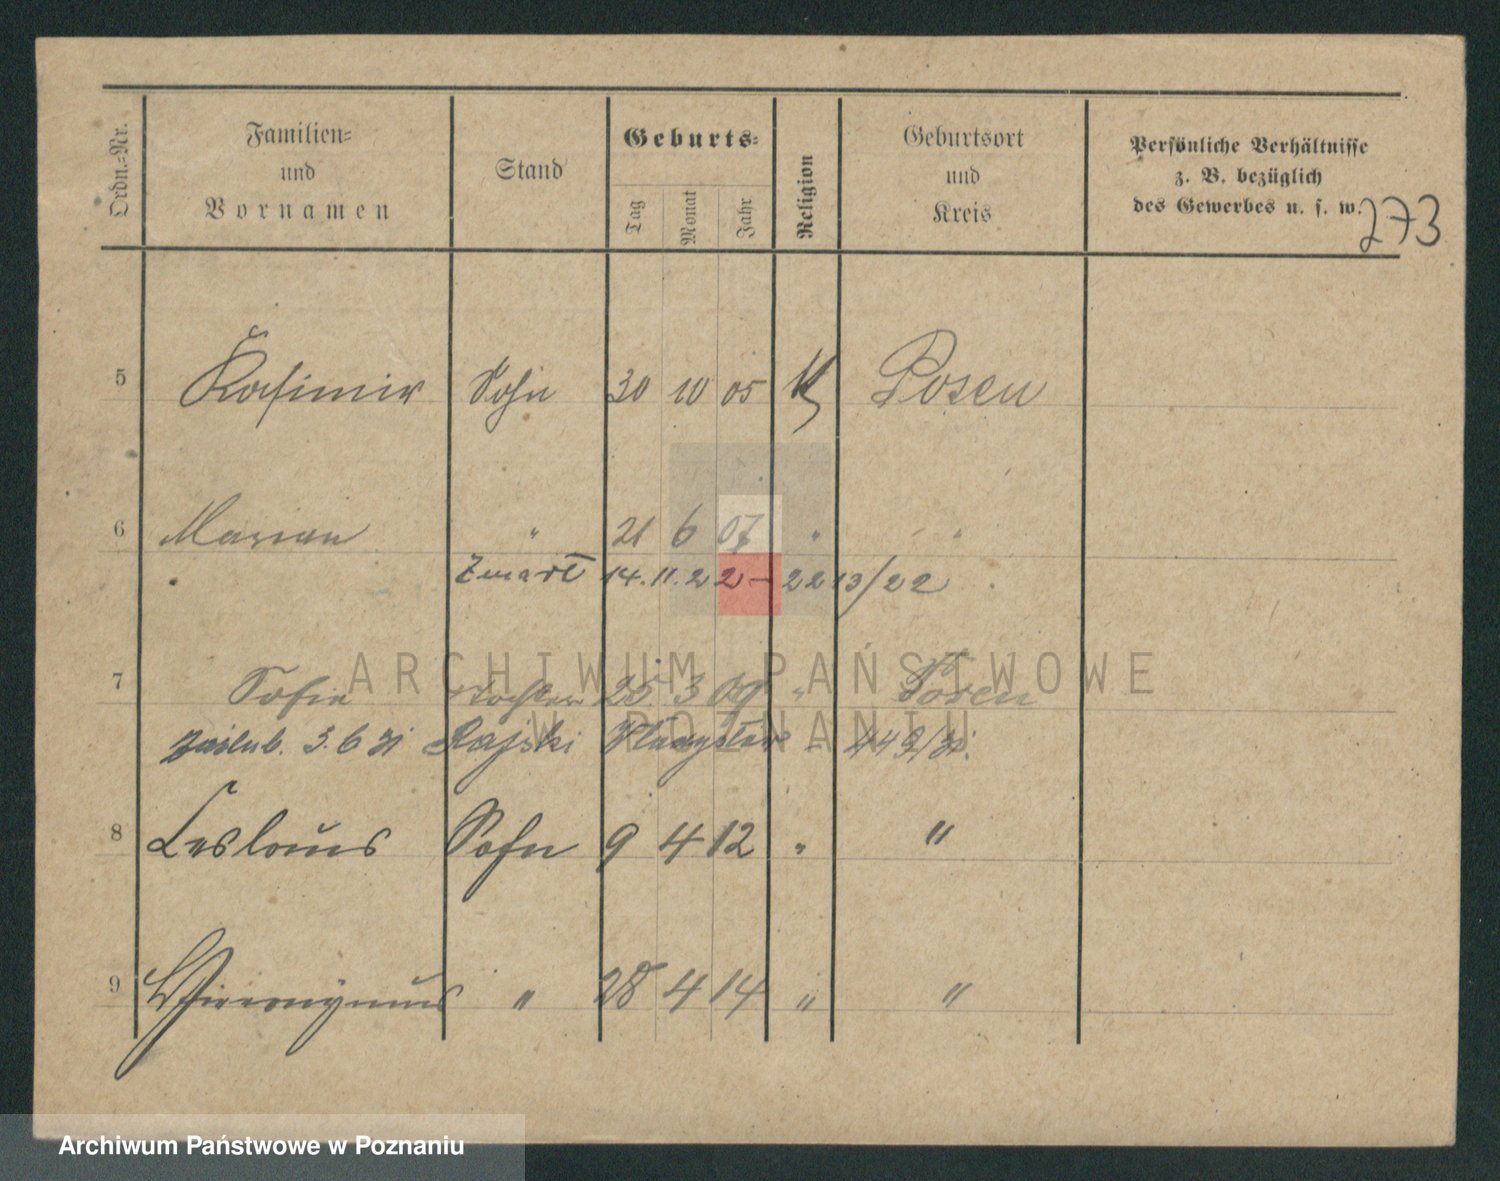 Ordn.-Nr. Familien- und Vornamen Stand Geburts- Tag Monat Jahr Religion Geburtsort und Kreis Persönliche Verhältnisse z. B. bezüglich des Gewerbes u. s. w.
273
5 Kasimir Sohn 30 10 05 K Posen
6 Marian " 21 6 07 " "
Zmarł 14.11.22 – 2213/22
7 Sofie Tochter 25 3 09 " Posen
3.6 31 Rajski 449/31.
8 Ceslaus Sohn 9 4 12 " "
9 Hieronymus " 28 4 14 " "
ARCHIWUM PAŃSTWOWE
W POZNANIU
Archiwum Państwowe w Poznaniu